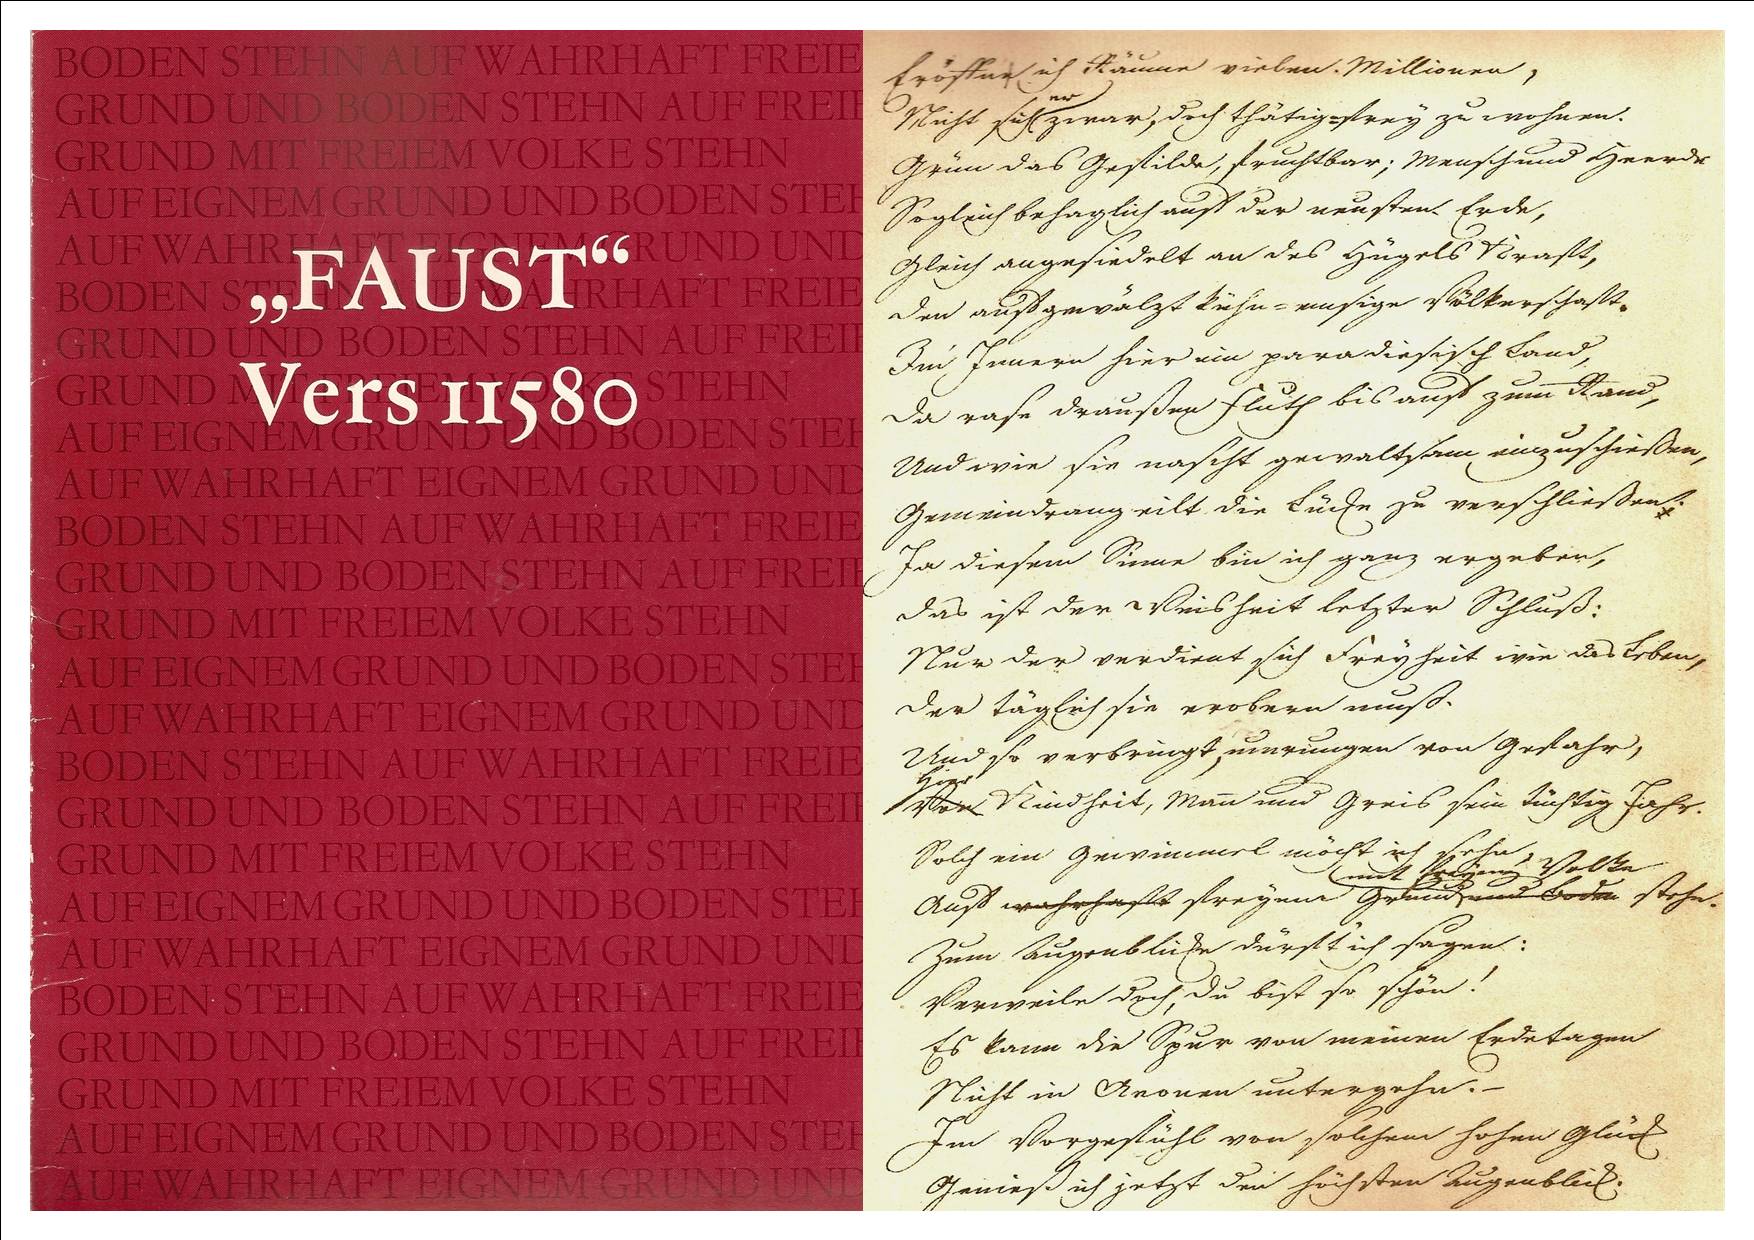 BODEN STEHN AUF WAHRHAFT FREIE
GRUND UND BODEN STEHN AUF FREIE
GRUND MIT FREIEM VOLKE STEHN
AUF EIGNEM GRUND UND BODEN STEH
AUF WAHRHAFT EIGNEM GRUND UND
„FAUST“
BODEN STEHN AUF WAHRHAFT FREIE
GRUND UND BODEN STEHN AUF FREIE
Vers 11580
GRUND MIT FREIEM VOLKE STEHN
AUF EIGNEM GRUND UND BODEN STEH
AUF WAHRHAFT EIGNEM GRUND UND
BODEN STEHN AUF WAHRHAFT FREIE
GRUND UND BODEN STEHN AUF FREIE
GRUND MIT FREIEM VOLKE STEHN
AUF EIGNEM GRUND UND BODEN STEH
AUF WAHRHAFT EIGNEM GRUND UND
BODEN STEHN AUF WAHRHAFT FREIE
GRUND UND BODEN STEHN AUF FREIE
GRUND MIT FREIEM VOLKE STEHN
AUF EIGNEM GRUND UND BODEN STEH
AUF WAHRHAFT EIGNEM GRUND UND
BODEN STEHN AUF WAHRHAFT FREIE
GRUND UND BODEN STEHN AUF FREIE
GRUND MIT FREIEM VOLKE STEHN
AUF EIGNEM GRUND UND BODEN STEH
AUF WAHRHAFT EIGNEM GRUND UND
Eröffne ich Räume vielen Millionen,
Nicht sicher zwar, doch thätig-frey zu wohnen.
Grün das Gefilde, fruchtbar; Mensch und Heerde
Sogleich behaglich auf der neusten Erde,
Gleich angesiedelt an des Hügels Kraft,
Den aufgewälzt kühn-emsige Völkerschaft.
Im Innern hier ein paradiesisch Land,
Da rase draußen Fluth bis auf zum Rand,
Und wie sie nascht gewaltsam einzuschießen,
Gemeindrang eilt die Lücke zu verschließen.
Ja diesem Sinne bin ich ganz ergeben,
Das ist der Weisheit letzter Schluß:
Nur der verdient sich Freyheit wie das Leben,
Der täglich sie erobern muß.
Und so verbringt, umrungen von Gefahr,
Hier
Von Kindheit, Mann und Greis sein tüchtig Jahr.
Solch ein Gewimmel möcht ich sehn,
mit freyem Volke
Auf wahrhaft freyem Grund und Boden stehn.
Zum Augenblicke dürft ich sagen:
Verweile doch, du bist so schön!
Es kann die Spur von meinen Erdetagen
Nicht in Aeonen untergehn.–
Im Vorgefühl von solchem hohen Glück
Genieß ich jetzt den höchsten Augenblick.